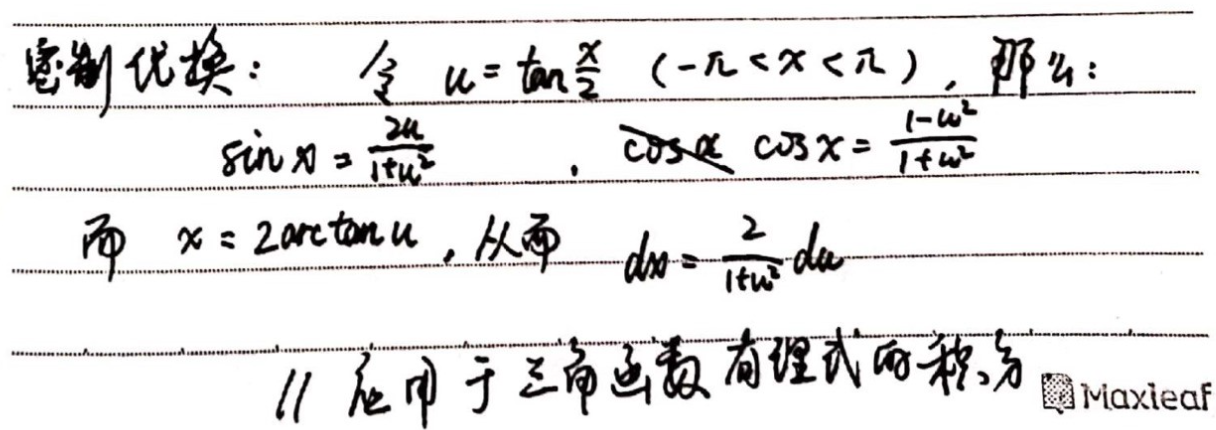 密制代换: 令 u = tan x/2 (-π < x < π), 那么:
sin x = 2u/(1+u²) , cos x = (1-u²)/(1+u²)
而 x = 2arctan u, 从而 dx = 2/(1+u²) du
// 应用于三角函数有理式的积分
Maxleaf